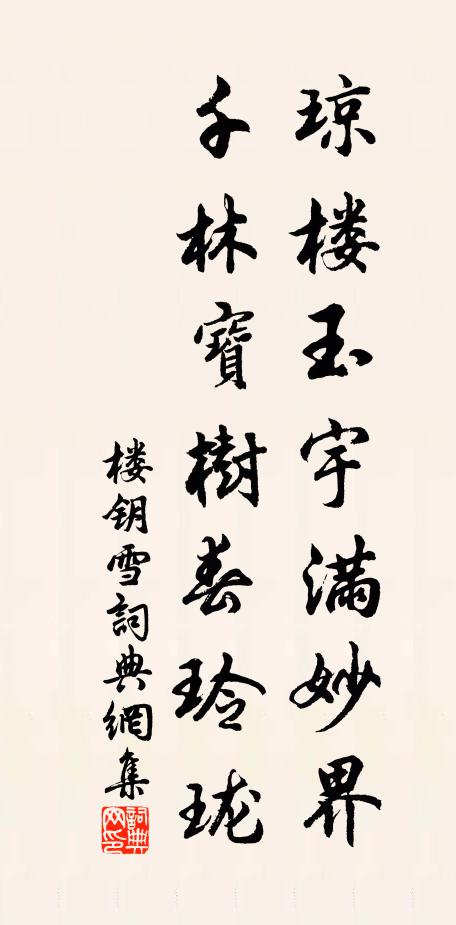 琼楼玉宇满妙界
千林寶樹春玲珑
楼钥雪詞典網集
詞典網印